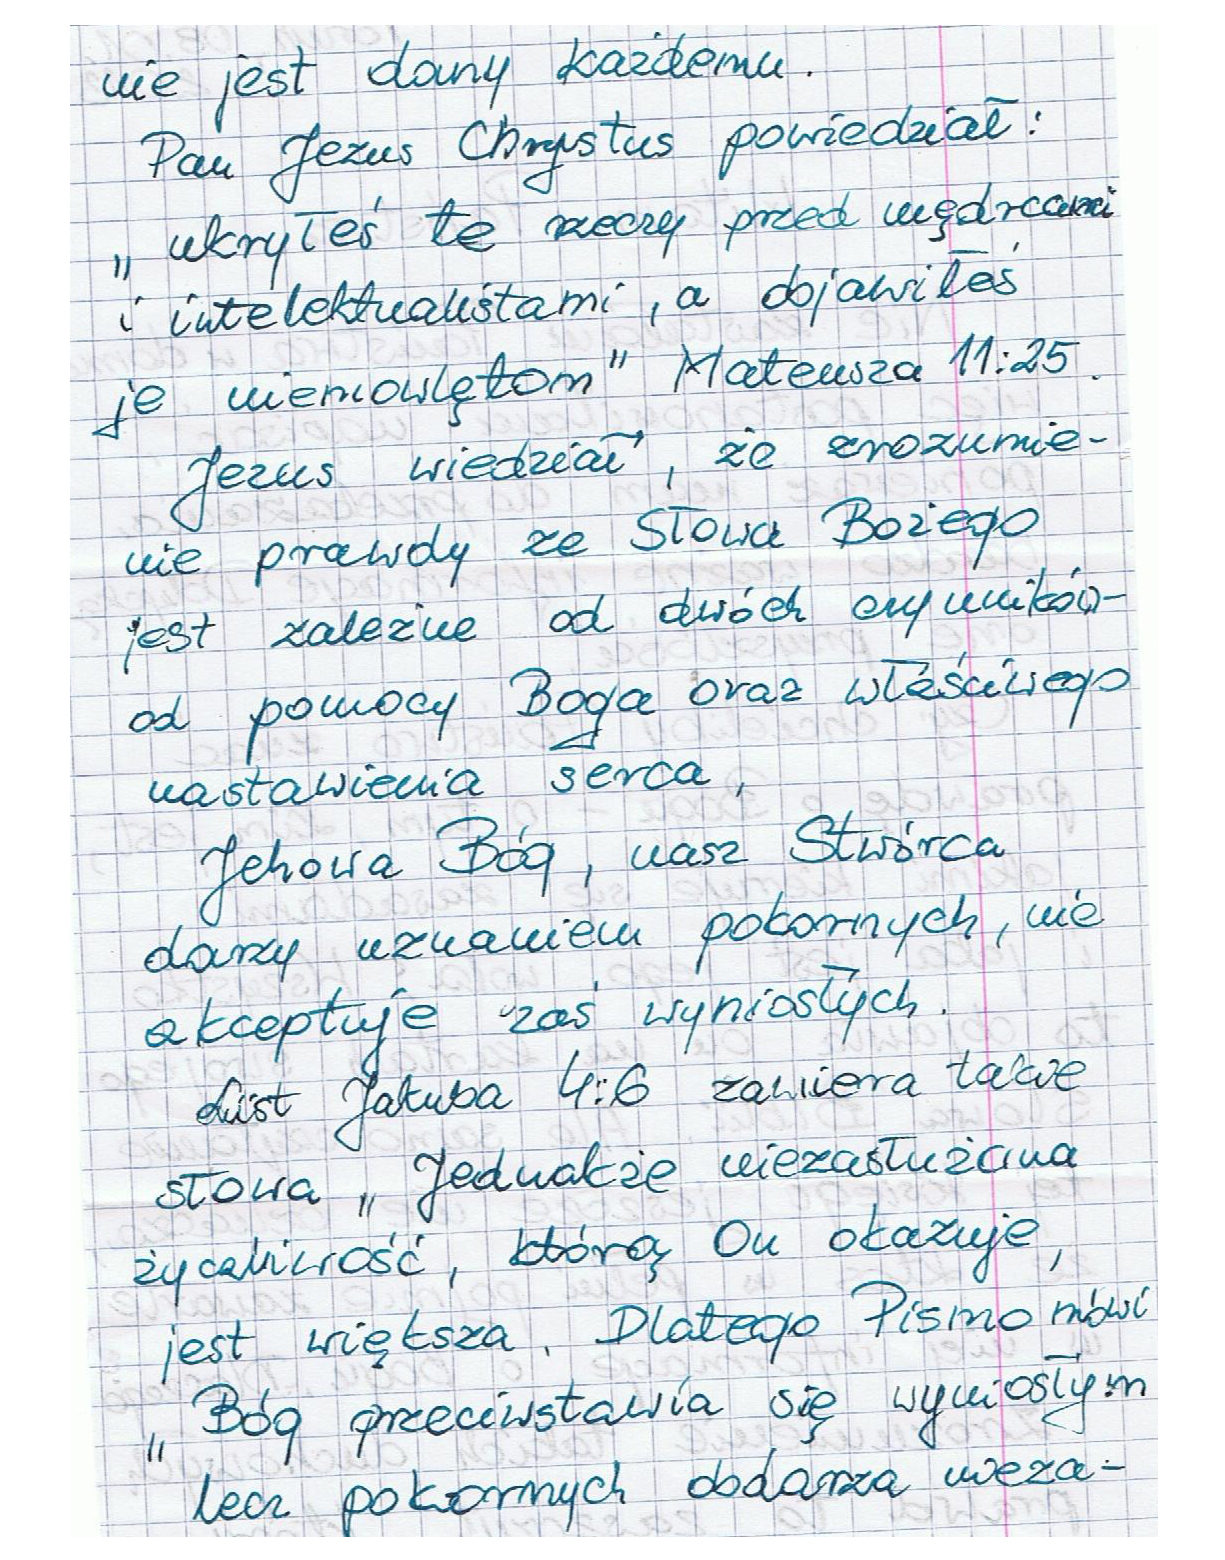 nie jest dany każdemu.
Pan Jezus Chrystus powiedział:
„ukryłeś te rzeczy przed mędrcami
i intelektualistami, a objawiłeś
je niemowlętom" Mateusza 11:25.
Jezus wiedział, że zrozumie-
nie prawdy ze Słowa Bożego
jest zależne od dwóch czynników-
od pomocy Boga oraz właściwego
nastawienia serca,
Jehowa Bóg, nasz Stwórca
darzy uznaniem pokornych, nie
akceptuje zaś wyniosłych.
List Jakuba 4:6 zawiera takie
słowa „Jednakże niezasłużona
życzliwość, którą On okazuje,
jest większa. Dlatego Pismo mówi
„Bóg przeciwstawia się wyniosłym
lecz pokornych obdarza nieza-